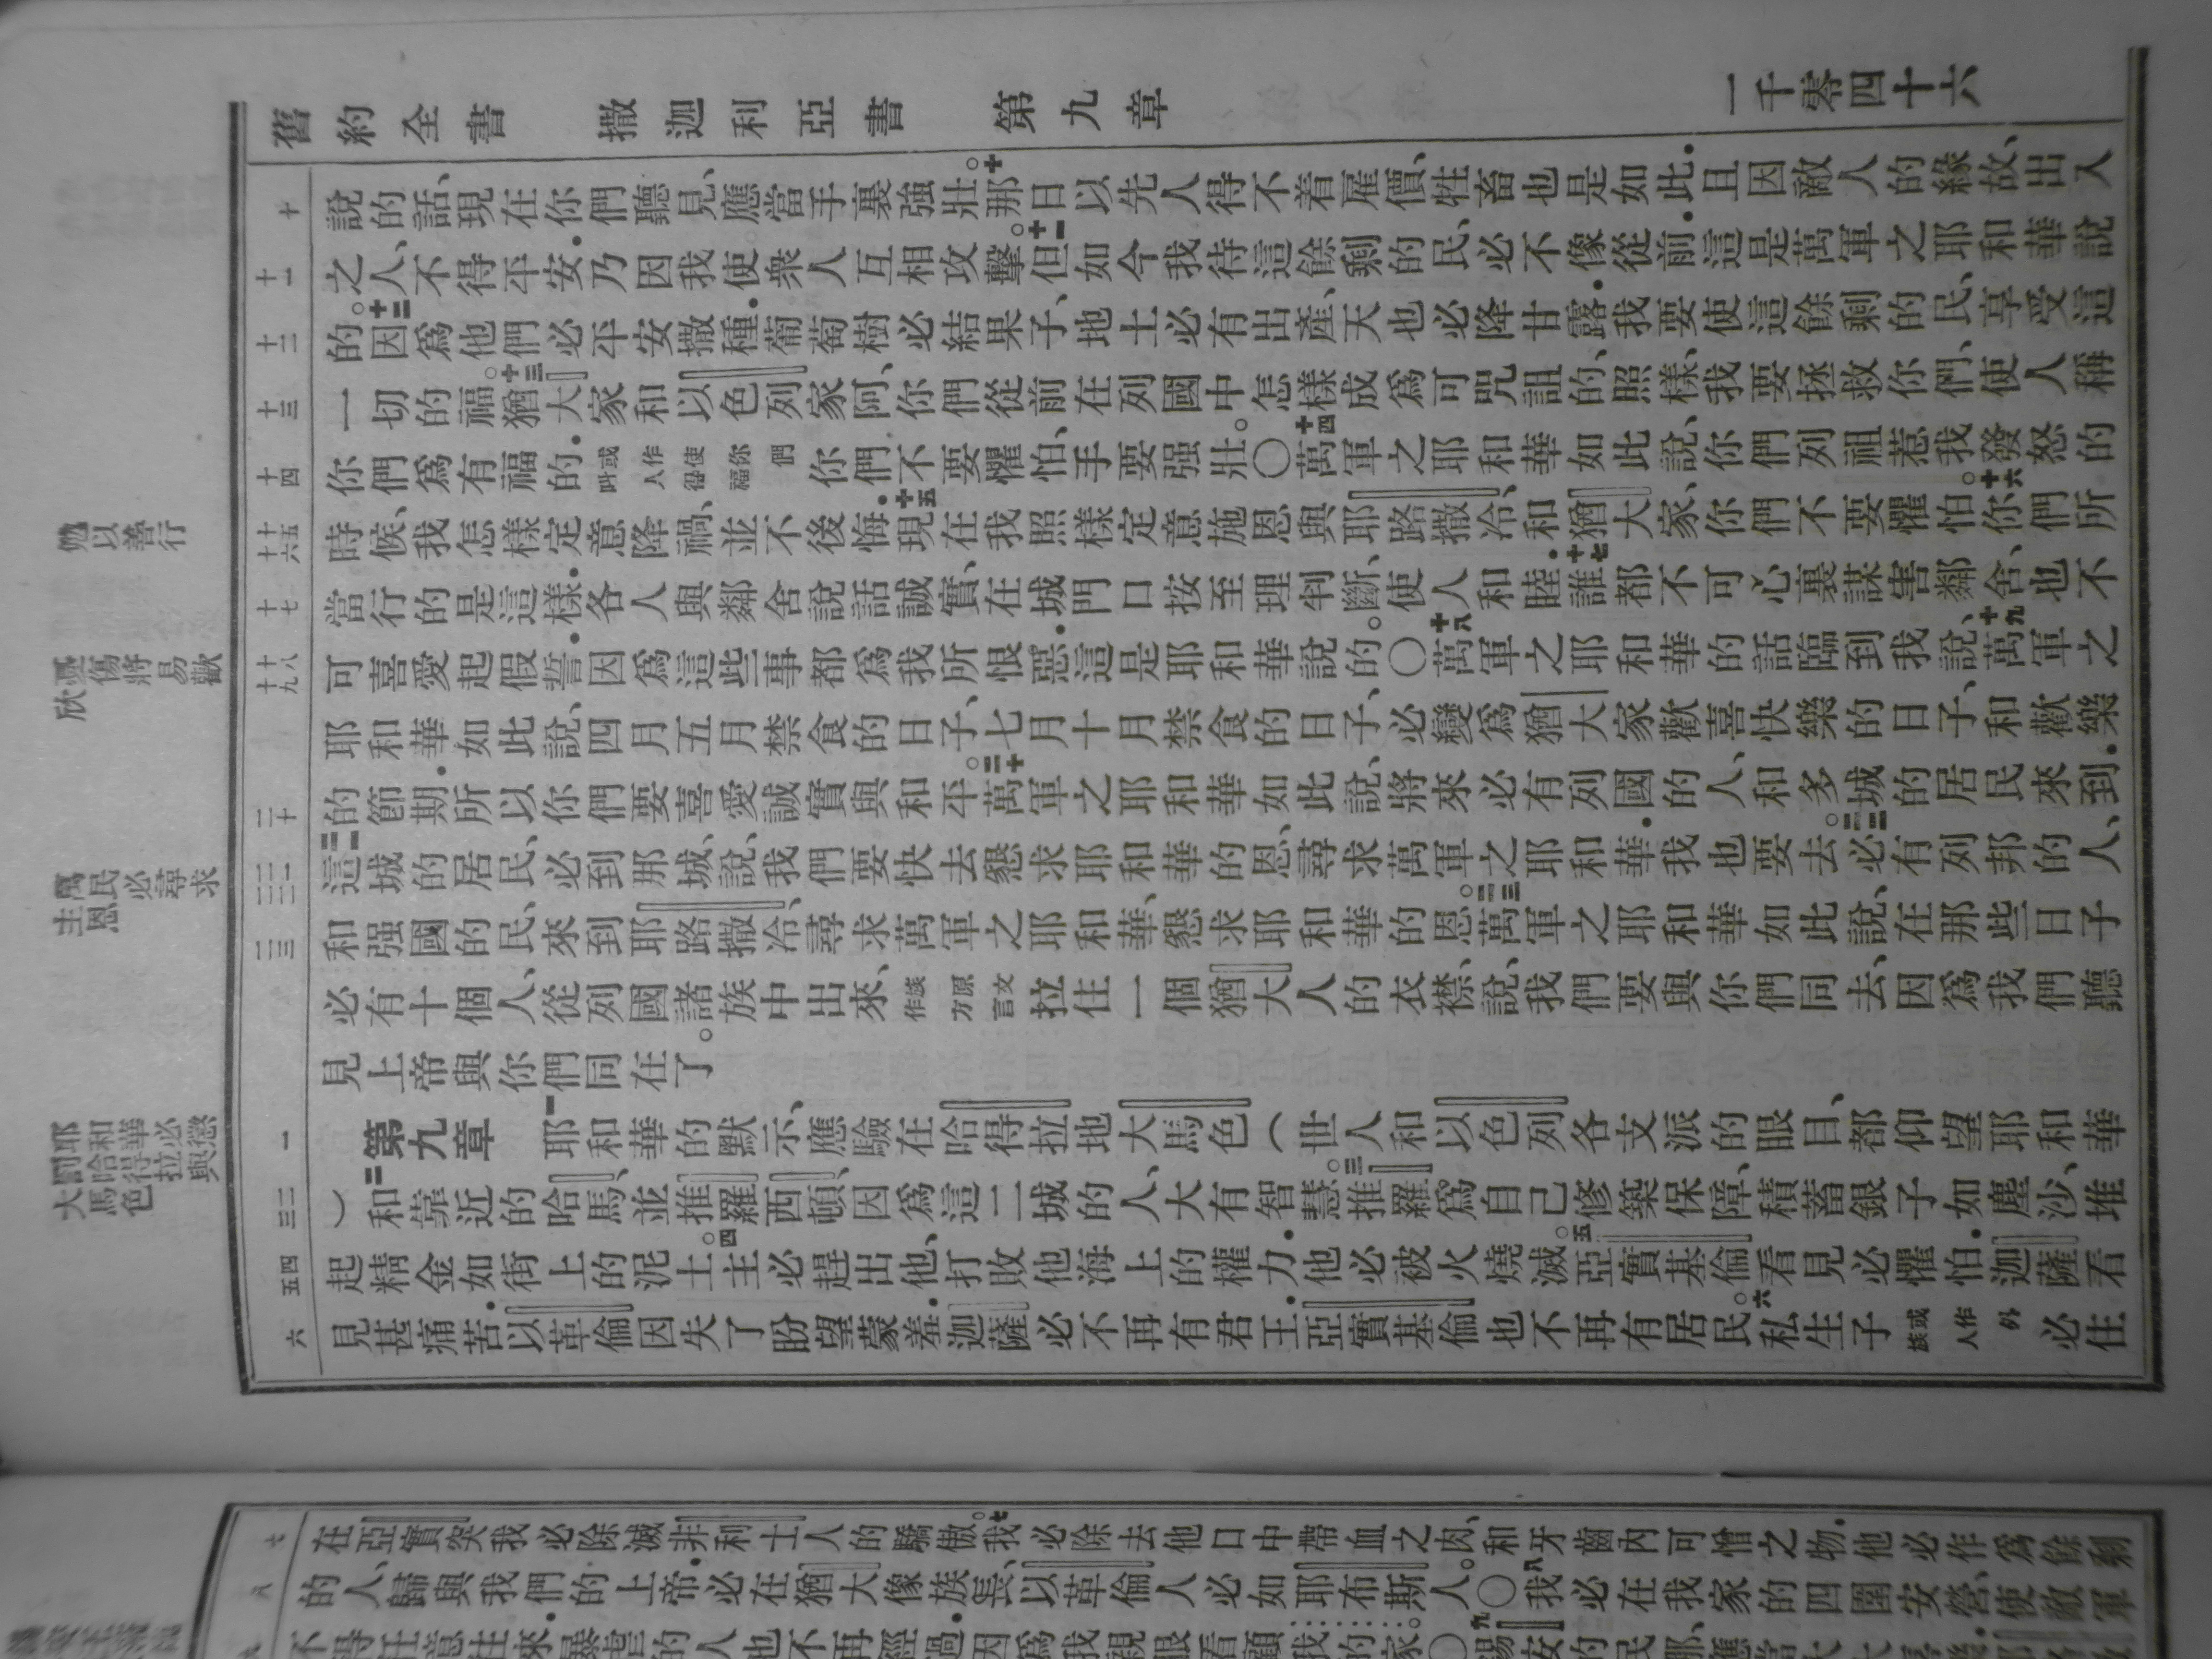 舊約全書 撒迦利亞書 第九章 一千零四十六
說的話、現在你們聽見、應當手裏強壯。十那日以先人得不着雇價、牲畜也是如此．且因敵人的緣故、出入
之人、不得平安．乃因我使衆人互相攻擊。十一但如今我待這餘剩的民、必不像從前．這是萬軍之耶和華說
的。十二因爲他們必平安撒種．葡萄樹必結果子、地土必有出產、天也必降甘露．我要使這餘剩的民、享受這
一切的福。十三猶大家和以色列家阿、你們從前在列國中怎樣成爲可咒詛的、照樣、我要拯救你們、使人稱
你們爲有福的．或作使你們叫人得福 你們不要懼怕、手要强壯。〇十四萬軍之耶和華如此說、你們列祖惹我發怒的
時候、我怎樣定意降禍、並不後悔．十五現在我照樣定意施恩與耶路撒冷、和猶大家、你們不要懼怕。十六你們所
當行的是這樣．各人與鄰舍說話誠實、在城門口按至理判斷、使人和睦．十七誰都不可心裏謀害鄰舍、也不
可喜愛起假誓．因爲這些事都爲我所恨惡．這是耶和華說的。〇十八萬軍之耶和華的話臨到我說、十九萬軍之
耶和華如此說、四月五月禁食的日子、七月十月禁食的日子、必變爲猶大家歡喜快樂的日子、和歡樂
的節期．所以你們要喜愛誠實與和平。二十萬軍之耶和華如此說、將來必有列國的人、和多城的居民來到．
二一這城的居民、必到那城、說、我們要快去懇求耶和華的恩、尋求萬軍之耶和華．我也要去。二二必有列邦的人、
和强國的民、來到耶路撒冷、尋求萬軍之耶和華、懇求耶和華的恩。二三萬軍之耶和華如此說、在那些日子
必有十個人、從列國諸族中出來、族原文作方言 拉住一個猶大人的衣襟、說、我們要與你們同去、因爲我們聽
見上帝與你們同在了。
第九章 一耶和華的默示、應驗在哈得拉地大馬色（世人和以色列各支派的眼目、都仰望耶和華
）二和靠近的哈馬、並推羅西頓、因爲這二城的人、大有智慧。三推羅爲自己修築保障、積蓄銀子如塵沙、堆
起精金如街上的泥土。四主必趕出他、打敗他海上的權力．他必被火燒滅。五亞實基倫看見必懼怕．迦薩看
見甚痛苦．以革倫因失了盼望蒙羞．迦薩必不再有君王．亞實基倫也不再有居民。六私生子或作外族人 必住
在亞實突．我必除滅非利士人的驕傲。七我必除去他口中帶血之肉、和牙齒內可憎之物．他必作爲餘剩
的人、歸與我們的上帝．必在猶大像族長、以革倫人必如耶布斯人。〇八我必在我家的四圍安營、使敵軍
不得任意往來．暴虐的人也不再經過．因爲我親眼看顧我的家。〇九
十
十一
十二
十三
十四
十五
十六
十七
十八
十九
二十
二一
二二
二三
一
二
三
四
五
六
七
八
勉以善行
憂傷將易歡欣
萬民必尋求主恩
耶和華必懲罰哈得拉與大馬色